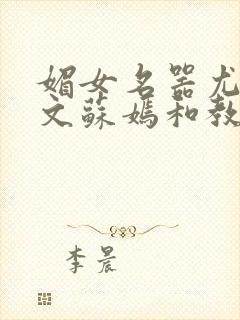 媚女名器尤
文蘇媽和教
李晨